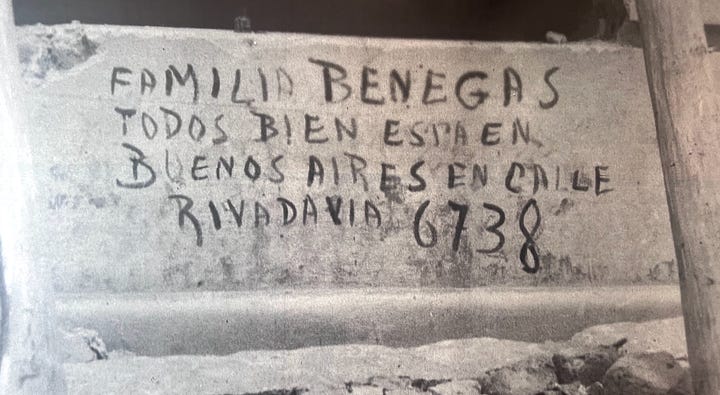 FAMILIA BENEGAS
TODOS BIEN ESTA EN
BUENOS AIRES EN CALLE
RIVADAVIA 6738